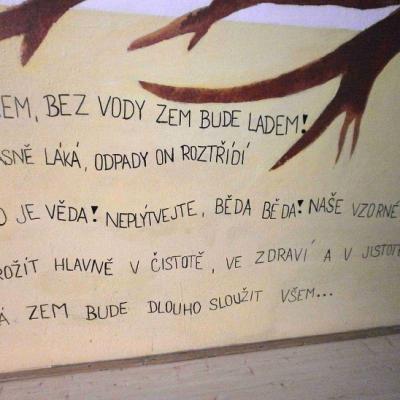 EM, BEZ VODY ZEM BUDE LADEM!
ASNĚ LÁKÁ, ODPADY ON ROZTŘÍDÍ
O JE VĚDA! NEPLÝTVEJTE, BĚDA BĚDA! NAŠE VZORNÉ
ROŽÍT HLAVNĚ V ČISTOTĚ, VE ZDRAVÍ A V JISTOTĚ
Á ZEM BUDE DLOUHO SLOUŽIT VŠEM...